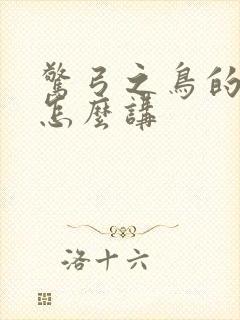 驚弓之鳥的
怎麼講
洛十六